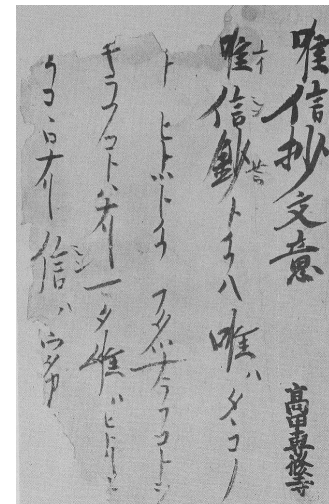 唯信抄文意
唯信鈔トイフハ唯ハタヽコノ
トヒトツトイフフタツナラフコトヲ
キラフコトハナリマタ唯ハヒトリト
イフコヽロナリ信ハウタカ
高田專修寺